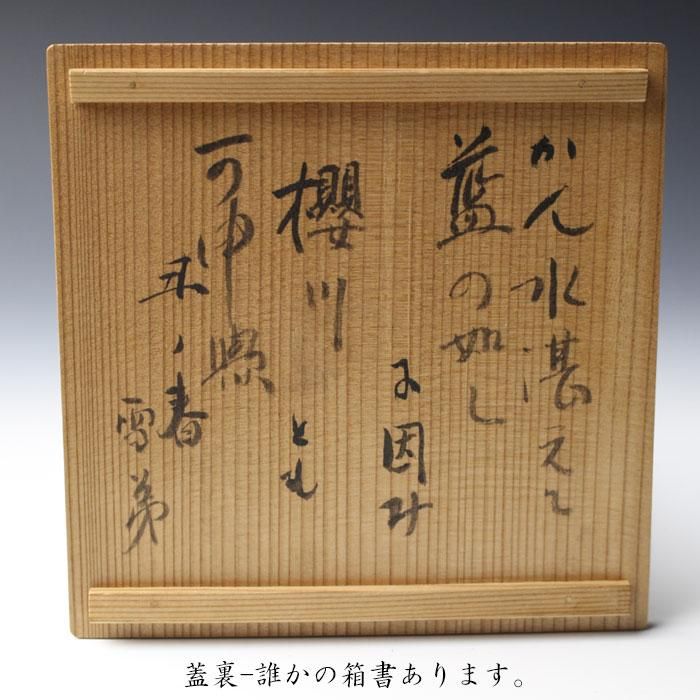 かん水湛えて
藍の如し
に因み
櫻川
とも
可申候
丑ノ春
雪弟
蓋裏-誰かの箱書あります。